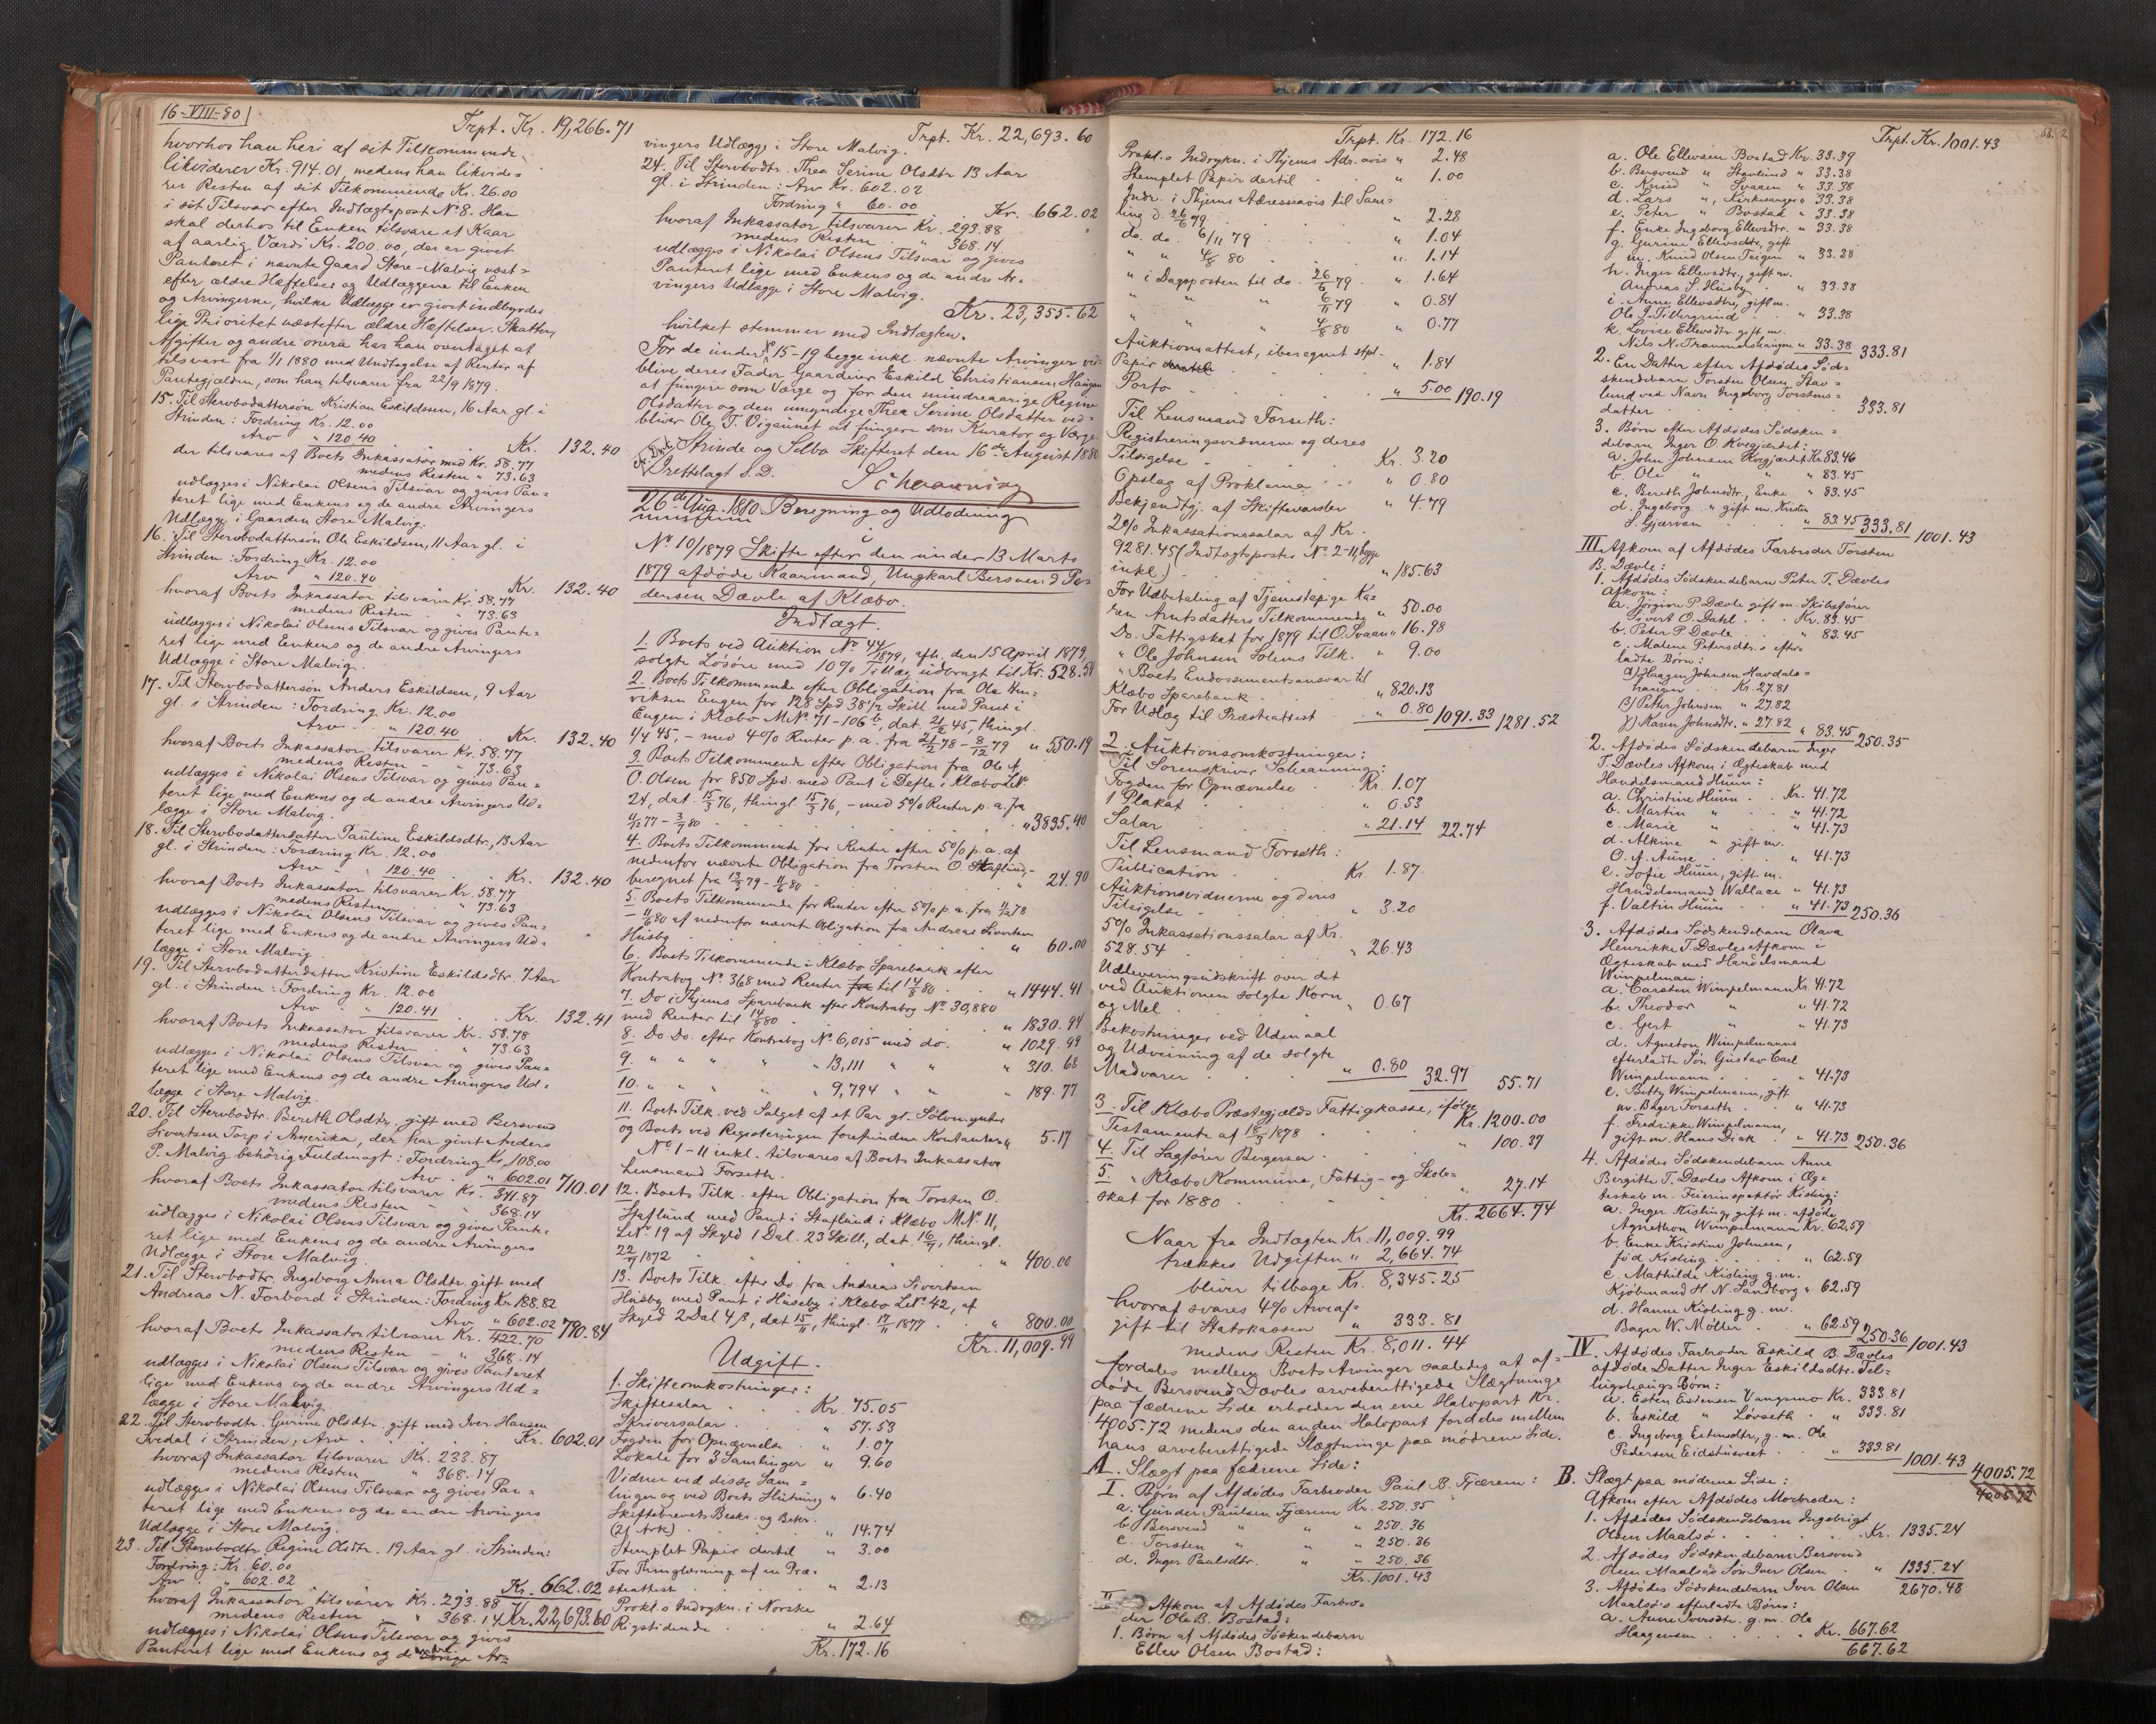 16-VIII-80
Trpt. Kr. 19,266.71
hvorhos han heri af sit Tilkommende
likviderer Kr. 914.01, medens han likvide=
rer Resten af sit Tilkommende Kr. 26.00
i sit Tilsvar efter Indtægtspost No 8. Han
skal derhos til Enken tilsvare et Kaar
af aarlig Værdi Kr. 200.00, der er givet
Panteret i nævnte Gaard Store-Malvig næst=
efter ældre Hæftelser og Udlæggene til Enken
og Arvingerne, hvilke Udlægge er givet indbyrdes
lige Prioritet næstefter ældre Hæftelser. Skatter,
Afgifter og andre onera har han overtaget at
tilsvare fra 1/1 1880 med Undtagelse af Renter af
Pantegjælden, som han tilsvarer fra 22/9 1879.
15. Til Stervbodattersøn Kristian Eskildssen, 16 Aar gl. i
Strinden: Fordring Kr. 12.00
Arv " 120.40 . Kr. 132.40
der tilsvares af Boets Inkassator med Kr. 58.77
medens Resten " 73.63
udlægges i Nikolai Olsens Tilsvar og gives Pan=
teret lige med Enkens og de andre Arvingers
Udlægge i Gaarden Store Malvig.
16. Til Stervbodattersøn Ole Eskildsen, 11 Aar gl. i
Strinden: Fordring Kr. 12.00
Arv " 120.40 Kr. 132.40
hvoraf Boets Inkassator tilsvarer Kr. 58.77
medens Resten " 73.63
udlægges i Nikolai Olsens Tilsvar og gives Pante=
ret lige med Enkens og de andre Arvingers
Udlægge i Store Malvig.
17. Til Stervbodattersøn Anders Eskildsen, 9 Aar
gl. i Strinden: Fordring Kr. 12.00
Arv . . " 120.40 . Kr. 132.40
hvoraf Boets Inkassator tilsvarer Kr. 58.77
medens Resten - " 73.63
udlægges i Nikolai Olsens Tilsvar og gives Pan=
teret lige med Enkens og de andre Arvingers Ud=
lægge i Store Malvig.
18. Til Stervbodatterdatter Pauline Eskildsdtr., 13 Aar
gl. i Strinden: Fordring Kr. 12.00
Arv - " 120.40 . Kr. 132.40
hvoraf Boets Inkassator tilsvarer Kr. 58.77
medens Resten " 73.63
udlægges i Nikolai Olsens Tilsvar og gives Pan=
teret lige med Enkens og de andre Arvingers Ud=
lægge i Store Malvig.
19. Til Stervbodatterdatter Kristine Eskildsdtr. 7 Aar
gl. i Strinden: Fordring Kr. 12.00
Arv . " 120.41 . Kr. 132.41
hvoraf Boets Inkassator tilsvarer Kr. 58.78
medens Resten " 73.63
udlægges i Nikolai Olsens Tilsvar og gives Pan=
teret lige med Enkens og de andre Arvingers Ud=
lægge i Store Malvig.
20. Til Stervbodtr. Bereth Olsdtr. gift med Bersvend
Sivertsen Torp i Amerika, der har givet Anders
P. Malvig behørig Fuldmagt: Fordring Kr. 108.00
Arv . " 602.01 710.01
hvoraf Boets Inkassator tilsvarer Kr. 341.87
medens Resten - " 368.14
udlægges i Nikolai Olsens Tilsvar og gives Pante=
ret lige med Enkens og de andre Arvingers
Udlægge i Store Malvig.
21. Til Stervbodtr. Ingeborg Anna Olsdtr. gift med
Andreas N. Forbord i Strinden: Fordring Kr. 188.82
Arv " 602.02 790.84
hvoraf Boets Inkassator tilsvarer Kr. 422.70
medens Resten - " 368.14
udlægges i Nikolai Olsens Tilsvar og gives Panteret
lige med Enkens og de andre Arvingers Ud=
lægge i Store Malvig.
22. Til Stervbodtr. Gurine Olsdtr. gift med Iver Hansen
Svedal i Strinden, Arv . . . . Kr. 602.01
hvoraf Inkassator tilsvarer Kr. 233.87
medens Resten " 368.14
udlægges i Nikolai Olsens Tilsvar og gives Pan=
teret lige med Enkens og de andre Arvingers
Udlægge i Store Malvig.
23. Til Stervbodtr. Regine Olsdtr. 19 Aar gl. i Strinden:
Fordring: Kr. 60.00
Arv . " 602.02 Kr. 662.02
hvoraf Inkassator tilsvarer Kr. 293.88
medens Resten " 368.14 Kr. 22,693.60
udlægges i Nikolai Olsens Tilsvar og gives
Panteret lige med Enkens og de andre øvrige Ar=
Trpt. Kr. 22,693.60
vingers Udlægge i Store Malvig.
24. Til Stervbodtr. Thea Serine Olsdtr. 13 Aar
gl. i Strinden: Arv Kr. 602.02
Fordring " 60.00 Kr. 662.02
hvoraf Inkassator tilsvarer Kr. 293.88
medens Resten . " 368.14
udlægges i Nikolai Olsens Tilsvar og gives
Panteret lige med Enkens og de andre Ar=
vingers Udlægge i Store Malvig.
Kr. 23,355.62
hvilket stemmer med Indtægten.
For de under No 15-19 begge inkl. nævnte Arvinger ved=
blive deres Fader Gaardeier Eskild Christiansen Haugan
at fungere som Værge og for den mindreaarige Regine
Olsdatter og den umyndige Thea Serine Olsdatter ved=
bliver Ole T. Vigaunet at fungere som Kurator og Værge.
Strinde og Selbo Skifteret den 16de August 1880
Fremlagt s. D. Schaanning
26de Aug. 1880. Beregning og Udlodning
i
No 10/1879 Skifte efter den under 13 Marts
1879 afdøde Kaarmand, Ungkarl Bersvend Pe=
dersen Dævle af Klæbo.
Indtægt.
1. Boets ved Auktion No 44/1879, afh. den 15 April 1879,
solgte Løsøre med 10% Tillæg udbragt til Kr. 528.54
2. Boets Tilkommende efter Obligation fra Ole Hen=
riksen Eugen for 128 Spd 38 1/2 Skill. med Pant i
Eugen i Klæbo M.No 71-106b, dat. 21/2 45, thingl.
4/4 45, - med 4% Renter p. a. fra 21/2 78 - 8/12 79 " 550.19
3. Boets Tilkommende efter Obligation fra Ole A.
O. Olsen for 850 Spd. med Pant i Tefte i Klæbo LNo
24, dat. 15/3 76, thingl. 15/3 76, - med 5% Renter p. a. fra
11/12 77 - 3/7 80 . . . . " 3835.40
4. Boets Tilkommende for Renter efter 5% p. a. af
nedenfor nævnte Obligation fra Torsten O. Staflund-
beregnet fra 13/3 79 - 11/6 80 . . " 24.90
5. Boets Tilkommende for Renter efter 5% p. a. fra 11/12 78
- 11/6 80 af nedenfor nævnt Obligation fra Andreas Sivertsen
Husby . . . . " 60.00
6. Boets Tilkommende i Klæbo Sparebank efter
Kontrabog No 368 med Renter fra til 14/8 80 . " 1444.41
7. Do i Thjems Sparebank efter Kontrabog No 30,880
med Renter til 14/8 80 . . . " 1830.94
8. Do. Do. efter Kontrabog No 6,015 med do. " 1029.99
9. " " " " " 13,111 " " " 310.68
10. " " " " " 9,794 " " " 189.77
11. Boets Tilk. ved Salget af et Par gl. Sølvmynter
og Boets ved Registeringen forefundne Kontanter " 5.17
No 1-11 inkl. tilsvares af Boets Inkassator
Lensmand Forseth.
12. Boets Tilk. efter Obligation fra Torsten O.
Staflund med Pant i Staflund i Klæbo M.No 11,
LNo 19 af Skyld 1 Dal. 23 Skill., dat 16/11, thingl.
22/11 1872 . . . . " 400.00
13. Boets Tilk. efter Do fra Andreas Sivertsen
Husby med Pant i Huseby i Klæbo LNo 42, af
Skyld 2 Dal 4 β, dat 15/11, thingl. 17/11 1877 . " 800.00
Kr. 11,009.99
Udgift.
1. Skifteomkostninger:
Skiftesalar . . Kr. 75.05
Skriversalar . . " 57.53
Fogden for Opnævnelse . " 1.07
Lokale for 3 Samlinger " 9.60
Vidner ved disse Sam=
linger og ved Boets Slutning " 6.40
Skiftebrevets Beskr. og Bekr.
(21 Ark) . . " 14.74
Stemplet Papir dertil " 3.00
For Thinglæsning af en Præ=
steattest . . " 2.13
Prokl.s Indrykn. i Norske
Rigstidende . . " 2.64
Kr. 172.16
Trpt. Kr. 172.16
Prokl.s Indrykn. i Thjems Adr. avis " 2.48
Stemplet Papir dertil . . " 1.00
Indr. i Thjems Adresseavis til Sam=
ling d. 26/6 79 . . " 2.28
do. do. 6/11 79 . . " 1.04
" " 4/8 80 . . " 1.14
" i Dagsposten til do. 26/6 79 . " 1.64
" " " 6/11 79 " 0.84
" " " 4/8 80 " 0.77
Auktionsattest, iberegnet stpl.
Papir dertil . . " 1.84
Porto . . . " 5.00 190.19
Til Lensmand Forseth:
Registreringsvidnerne og deres
Tilsigelse . . Kr. 3.20
Opslag af Proklama . . " 0.80
Bekjendtgj. af Skiftevarsler " 4.79
2% Inkassationssalar af Kr.
9281.45 (Indtægtsposter No 2-11, begge
inkl.) . . " 185.63
For Udbetaling af Tjenestepige Ka=
ren Arntsdatters Tilkommende " 50.00
Do. Fattigskat for 1879 til O. Svaan " 16.98
" Ole Johnsen Solems Tilk. " 9.00
" Boets Endossementsansvar til
Klæbo Sparebank . . " 820.13
For Udlæg til Præsteattest . " 0.80 1091.33 1281.52
2. Auktionsomkostninger:
Til Sorenskriver Schaanning:
Fogden for Opnævnelse . Kr. 1.07
1 Plakat . . " 0.53
Salar . . " 21.14 22.74
Til Lensmand Forseth:
Publication . . Kr. 1.87
Auktionsvidnerne og deres
Tilsigelse . . " 3.20
5% Inkassationssalar af Kr.
528.54 . . " 26.43
Udleveringsudskrift over det
ved Auktionen solgte Korn
og Mel . . " 0.67
Bekostninger ved Udmaal
og Udveining af de solgte
Madvarer . . " 0.80 32.97 55.71
3. Til Klæbo Præstegjælds Fattigkasse, ifølge
Testamente af 18/3 1878 . . Kr. 1200.00
4. Til Sagfører Bergersen . . " 100.37
5. " Klæbo Kommune, Fattig- og Skole=
skat for 1880 . . " 27.14
Kr. 2664.74
Naar fra Indtægten Kr. 11,009.99
trækkes Udgiften " 2,664.74
bliver tilbage Kr. 8,345.25
hvoraf svares 4% Arveaf=
gift til Statskassen " 333.81
medens Resten Kr. 8,011.44
fordeles mellem Boets Arvinger saaledes at af=
døde Bersvend Dævles arveberettigede Slægtninge
paa fædrene Side erholder den ene Halvpart Kr.
4005.72 medens den anden Halvpart fordeles mellem
hans arveberettigede Slægtninge paa mødrene Side.
A. Slægt paa fædrene Side:
I. Børn af Afdødes Farbroder Paul B. Fjærem:
a. Gunder Paulsen Fjærem Kr. 250.35
b. Bersvend " " " 250.36
c. Torsten " " " 250.36
d. Inger Paulsdtr. " " 250.36
Kr. 1001.43
II. Afkom af Afdødes Farbro=
der Ole B. Bostad:
1. Børn af Afdødes Søskendebarn
Ellev Olsen Bostad:
Trpt. Kr. 1001.43
a. Ole Ellevsen Bostad Kr. 33.39
b. Bersvend " Stavlund " 33.38
c. Knud " Svaaen " 33.38
d. Lars " Kirkesanger " 33.38
e. Peter " Bostad " 33.38
f. Enke Ingeborg Ellevsdtr. " 33.38
g. Gurine Ellevsdtr., gift
m. Knud Olsen Teigen " 33.38
h. Inger Ellevsdtr., gift m.
Andreas S. Husby . " 33.38
i. Anne Ellevsdtr., gift m.
Ole J. Tillergrind . " 33.38
k. Lovise Ellevsdtr. gift m.
Nils N. Traumelshaugen " 33.38 333.81
2. En Datter efter Afdødes Sød=
skendebarn Torsten Olsen Stav=
lund ved Navn Ingeborg Torstens=
datter . . . 333.81
3. Børn efter Afdødes Sødsken=
debarn Inger O. Kvegjærdet:
a. John Johnsen Kvegjærdet Kr. 83.46
b. Ole " " " 83.45
c. Bereth Johnsdtr., Enke " 83.45
d. Ingeborg " gift m. Kristen
S. Gjervan . . " 83.45 333.81 1001.43
III. Afkom af Afdødes Farbroder Torsten
B. Dævle:
1. Afdødes Sødskendebarn Peter T. Dævles
Afkom:
a. Jørgine P. Dævle gift m. Skibsfører
Sivert O. Dahl . . Kr. 83.45
b. Peter P. Dævle . . " 83.45
c. Malene Petersdtr.s efter=
ladte Børn:
α) Haagen Johnsen Havdals=
haugen . Kr. 27.81
β) Peter Johnsen " 27.82
γ) Karen Johnsdtr. " 27.82 " 83.45 250.35
2. Afdødes Sødskendebarn Inger
T. Dævles Afkom i Ægteskab med
Handelsmand Huun:
a. Christine Huun . . Kr. 41.72
b. Martin " . " 41.72
c. Marie " . " 41.73
d. Alkine " gift m.
O. A. Aune . . " 41.73
e. Sofie Huun, gift m.
Handelsmand Wallace " 41.73
f. Valtin Huun . . " 41.73 250.36
3. Afdødes Sødskendebarn Olava
Henrikke T. Dævles Afkom i
Ægteskab med Handelsmand
Wimpelman:
a. Carsten Wimpelmann Kr. 41.72
b. Theodor " " 41.72
c. Gert " " 41.73
d. Agneton Wimpelmanns
efterladte Søn Gustav Carl
Wimpelmann . . " 41.73
e. Betty Wimpelmann, gift
m. Bager Forseth . . " 41.73
f. Fredrikke Wimpelmann,
gift m. Hans Dick . " 41.73 250.36
4. Afdødes Sødskendebarn Anne
Bergitte T. Dævles Afkom i Æg=
teskab m. Feierinspektør Kisling:
a. Inger Kisling, gift m. afdøde
Agnethon Wimpelmann Kr. 62.59
b. Enke Kristine Johnsen,
fød Kisling . . " 62.59
c. Mathilde Kisling g. m.
Kjøbmand H. N. Sandborg " 62.59
d. Hanne Kisling g. m.
Bager W. Møller . . " 62.59 250.36 1001.43
IV. Afdødes Farbroder Eskild B. Dævles
afdøde Datter Inger Eskildsdtr. Tel=
lugshaugs Børn:
a. Esten Estensen Vangsmo Kr. 333.81
b. Eskild " Løvseth . " 333.81
c. Ingeborg Estensdtr., g. m. Ole
Pedersen Eidstuveet . . " 333.81 1001.43 4005.72
4005.72
B. Slægt paa mødrene Side:
Afkom efter Afdødes Morbroder:
1. Afdødes Sødskendebarn Ingebrigt
Olsen Maalsø . . . Kr. 1335.24
2. Afdødes Sødskendebarn Bersvend
Olsen Maalsøs Søn Iver Olsen . " 1335.24
3. Afdødes Sødskendebarn Iver Olsen 2670.48
Maalsø's efterladte Børn:
a. Anne Iversdtr. g. m. Ole
Haagensen . . . Kr. 667.62
667.62